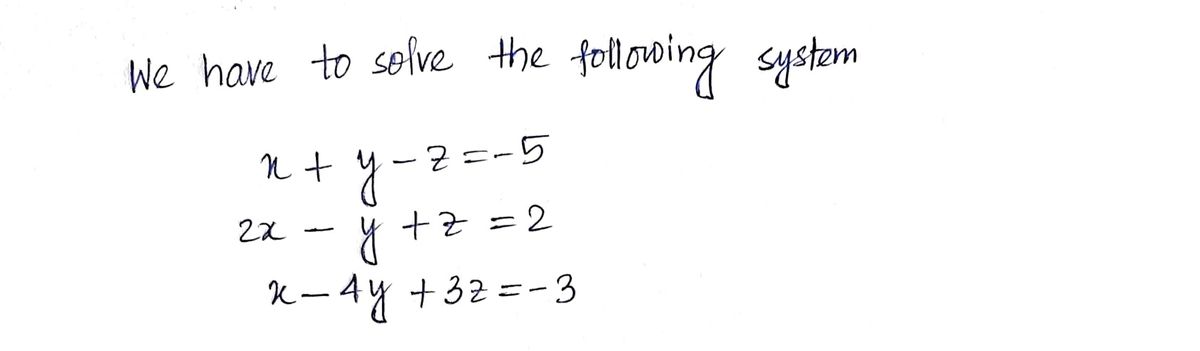 We have to solve the following system
x + y - z = -5
2x - y + z = 2
x - 4y + 3z = -3